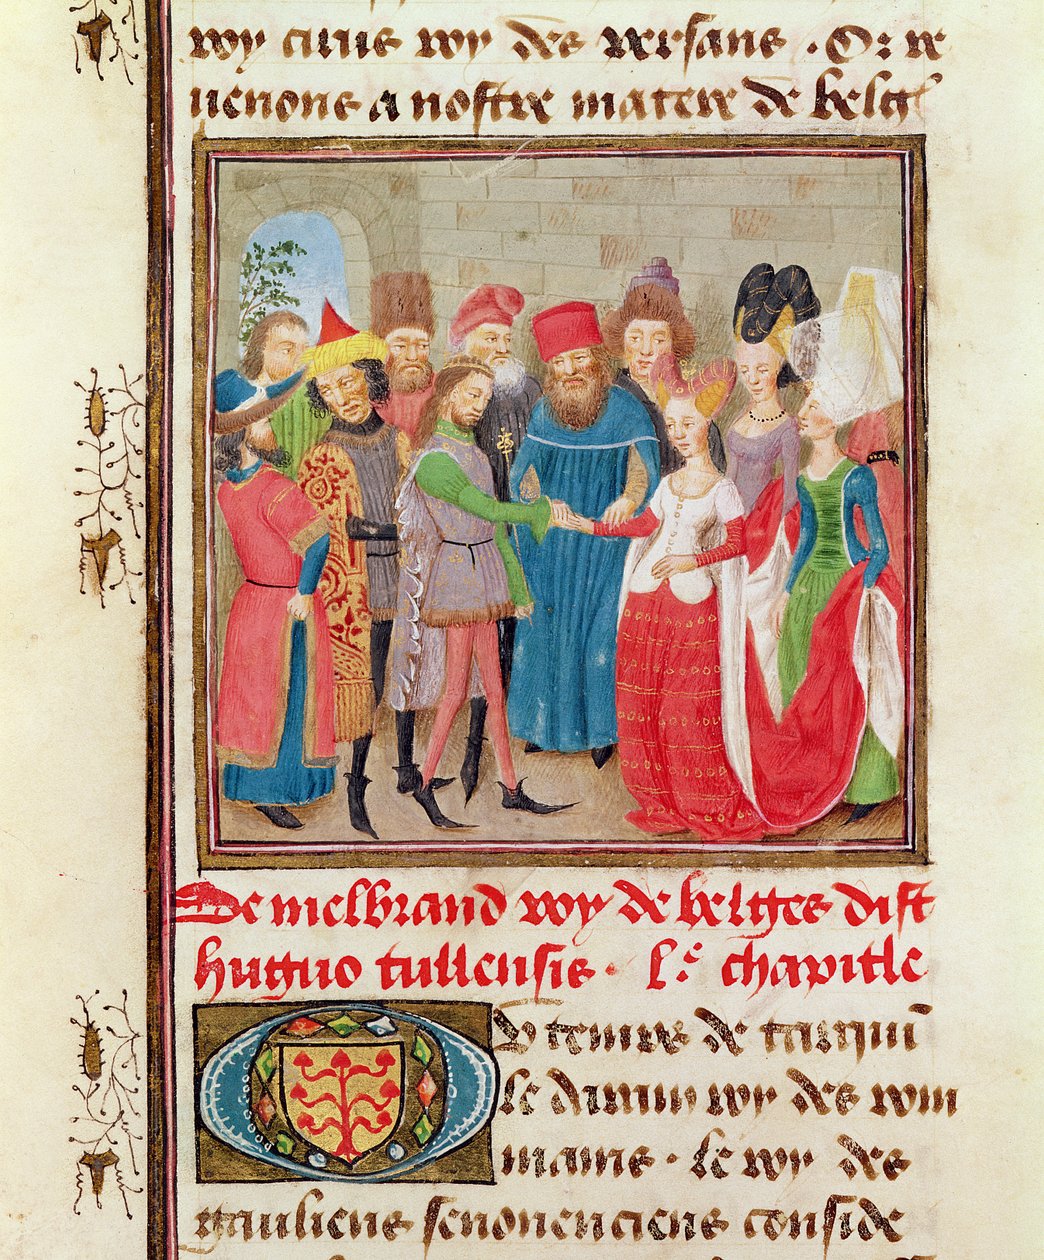 roy cirus roy des persans. Or re
uenons a nostre matere de belges
De melbrand roy de belges dist
huguo tullensis. L.e chapitle
Ou temps de tarquin
le darrain roy des rom
mains. le roy des
gauliens senonenciens conside